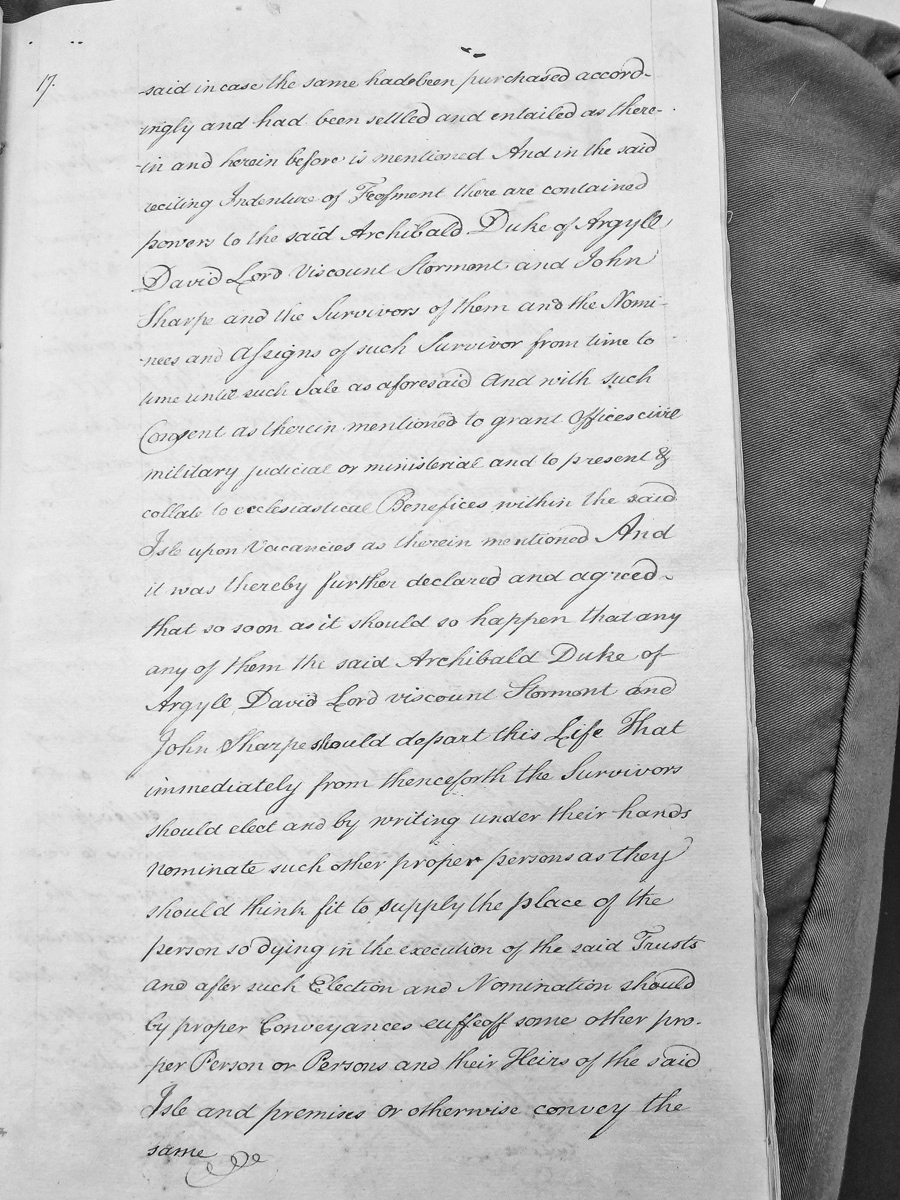 17.
said in case the same had been purchased accord-
ingly and had been settled and entailed as there-
-in and herein before is mentioned And in the said
reciting Indenture of Feofment there are contained
powers to the said Archibald Duke of Argyll
David Lord Viscount Stormont and John
Sharpe and the Survivors of them and the Nomi-
-nees and Assigns of such Survivor from time to
time until such Sale as aforesaid and with such
Consent as therein mentioned to grant Offices civil
military judicial or ministerial and to present &
collate to ecclesiastical Benefices within the said
Isle upon Vacancies as therein mentioned And
it was thereby further declared and agreed
that so soon as it should so happen that any
any of them the said Archibald Duke of
Argyll David Lord viscount Stormont and
John Sharpe should depart this Life That
immediately from thenceforth the Survivors
should elect and by writing under their hands
nominate such other proper persons as they
should think fit to supply the place of the
person so dying in the execution of the said Trusts
and after such Election and Nomination should
by proper Conveyances enffeoff some other pro-
per Person or Persons and their Heirs of the said
Isle and premises or otherwise convey the
same